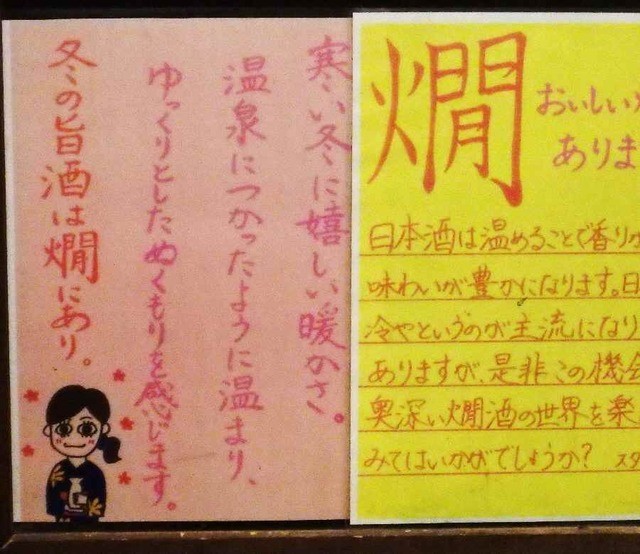 寒い冬に嬉しい暖かさ。
温泉につかったように温まり、
ゆっくりとしたぬくもりを感じます。
冬の旨酒は燗にあり。
燗
おいしい
ありま
日本酒は温めることで香り
味わいが豊かになります。日
冷やというのが主流になり
ありますが、是非この機会
奥深い燗酒の世界を楽
みてはいかがでしょうか? スタ